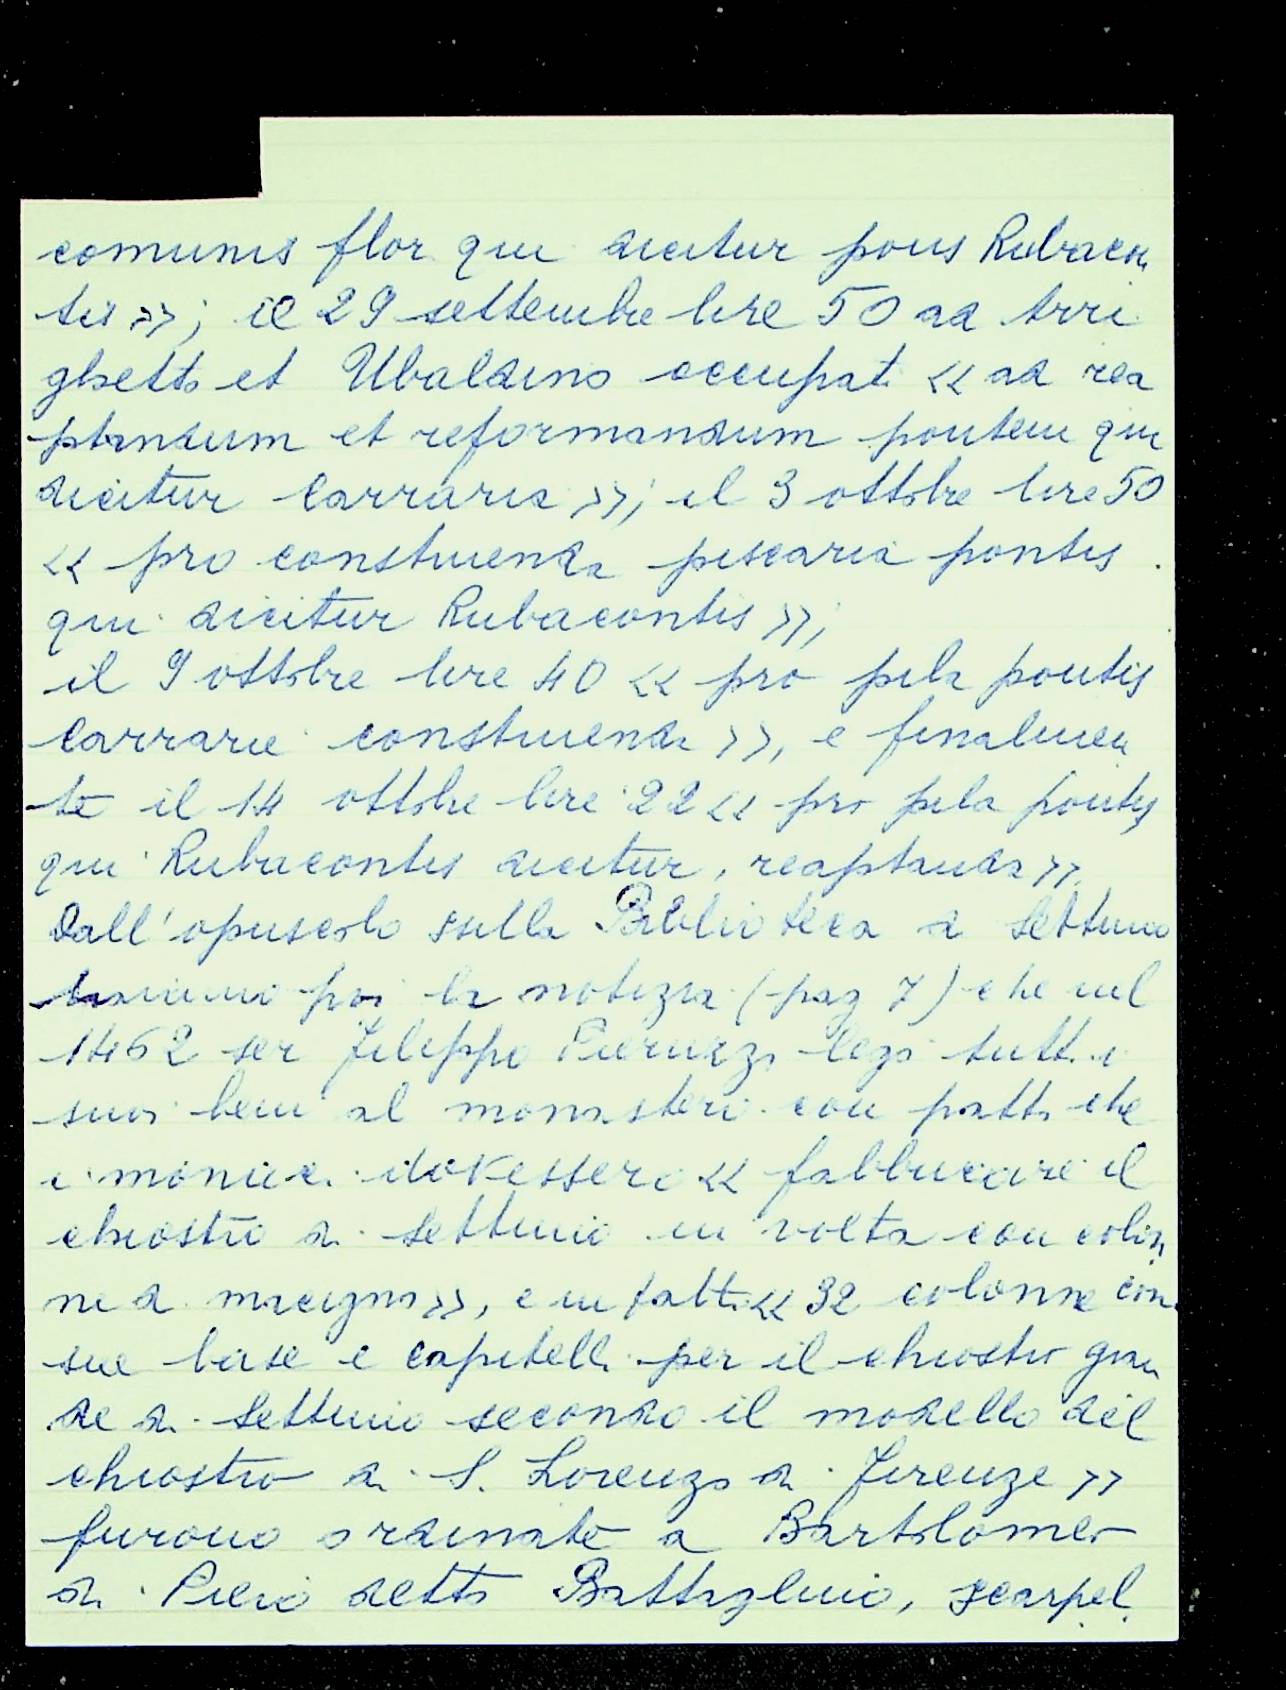 comunis flor qui dicitur pons Rubacon
tis »; il 29 settembre lire 50 ad Arri
ghetto et Ubaldino occupati « ad rea
ptandum et reformandum pontem qui
dicitur Carraria »; il 3 ottobre lire 50
« pro construenda pescaria pontis
qui dicitur Rubacontis »;
il 9 ottobre lire 40 « pro pila pontis
Carrarie construenda », e finalmen
te il 14 ottobre lire 22 « pro pila pontis
qui Rubacontis dicitur, reaptanda ».
Dall'opuscolo sulla Biblioteca di Settimo
poi la notizia (pag 7) che nel
1462 ser Filippo Pieruzzi legò tutti i
suoi beni al monastero con patto che
i monaci dovessero « fabbricare il
chiostro di Settimo in volta con colon
ne di macigno », e infatti « 32 colonne con
sue base e capitelli per il chiostro gran
de di Settimo secondo il modello del
chiostro di S. Lorenzo di Firenze »
furono ordinate a Bartolomeo
di Piero detto Battaglino, scarpel